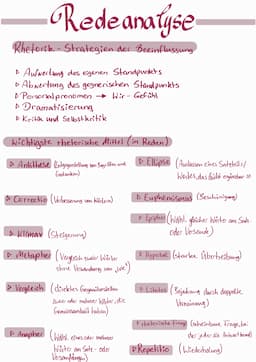 Redeanalyse
Rhetorik - Strategien der Beeinflussung
▷ Aufwertung des eigenen Standpunkts
▷ Abwertung des gegnerischen Standpunkts
▷ Personalpronomen → Wir - Gefühl
▷ Dramatisierung
▷ Kritik und Selbstkritik
Wichtigste rhetorische Mittel (in Reden)
▷ Antithese (Entgegenstellung von Begriffen und
Gedanken)
▷ Correctio (Verbesserung von Wörtern)
▷ Klimax (Steigerung)
▷ Metapher (Vergleich zweier Wörter
ohne Verwendung von „wie")
▷ Vergleich (direktes Gegenüberstellen
zwei oder mehrerer Wörter, die
Gemeinsamkeit haben)
▷ Anapher (Wdhl. eines oder mehrerer
Wörter am Satz- oder
Versanfang)
▷ Ellipse (Auslassen eines Satzteils/
Wortes, das
▷ Euphemismus (Beschönigung)
▷ Epipher (Wdhl. gleicher Wörter am Satz-
oder Versende)
▷ Hyperbel (starke Übertreibung)
▷ Litotes (Bejahung durch doppelte
Verneinung)
▷ rhetorische Frage (scheinbare Frage, bei
der jeder die Antwort kennt)
▷ Repetitio (Wiederholung)